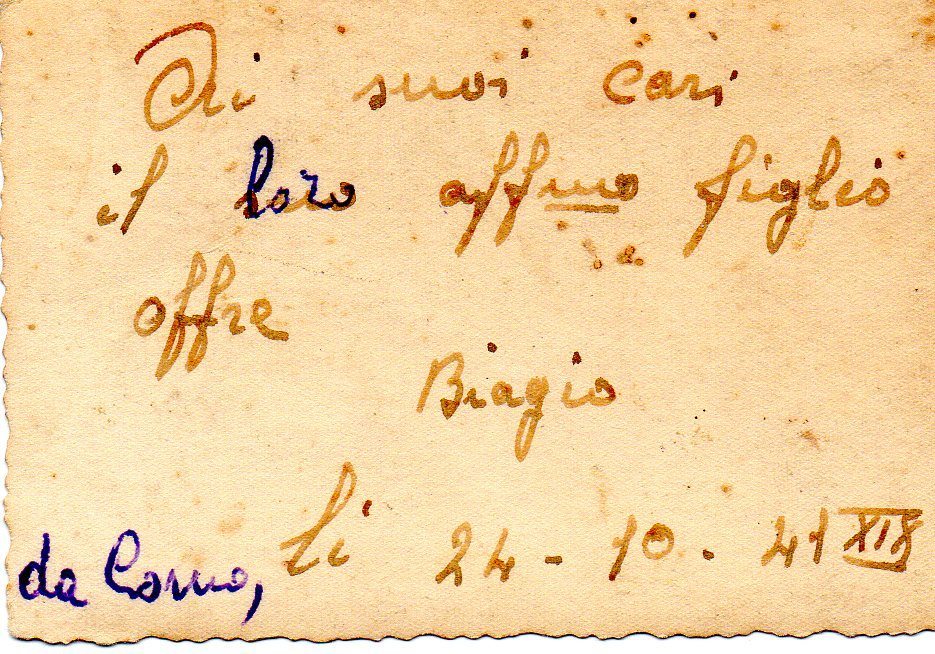 Ai suoi cari
il loro affmo figlio
offre
Biagio
da Como, li 24-10-41 XIX